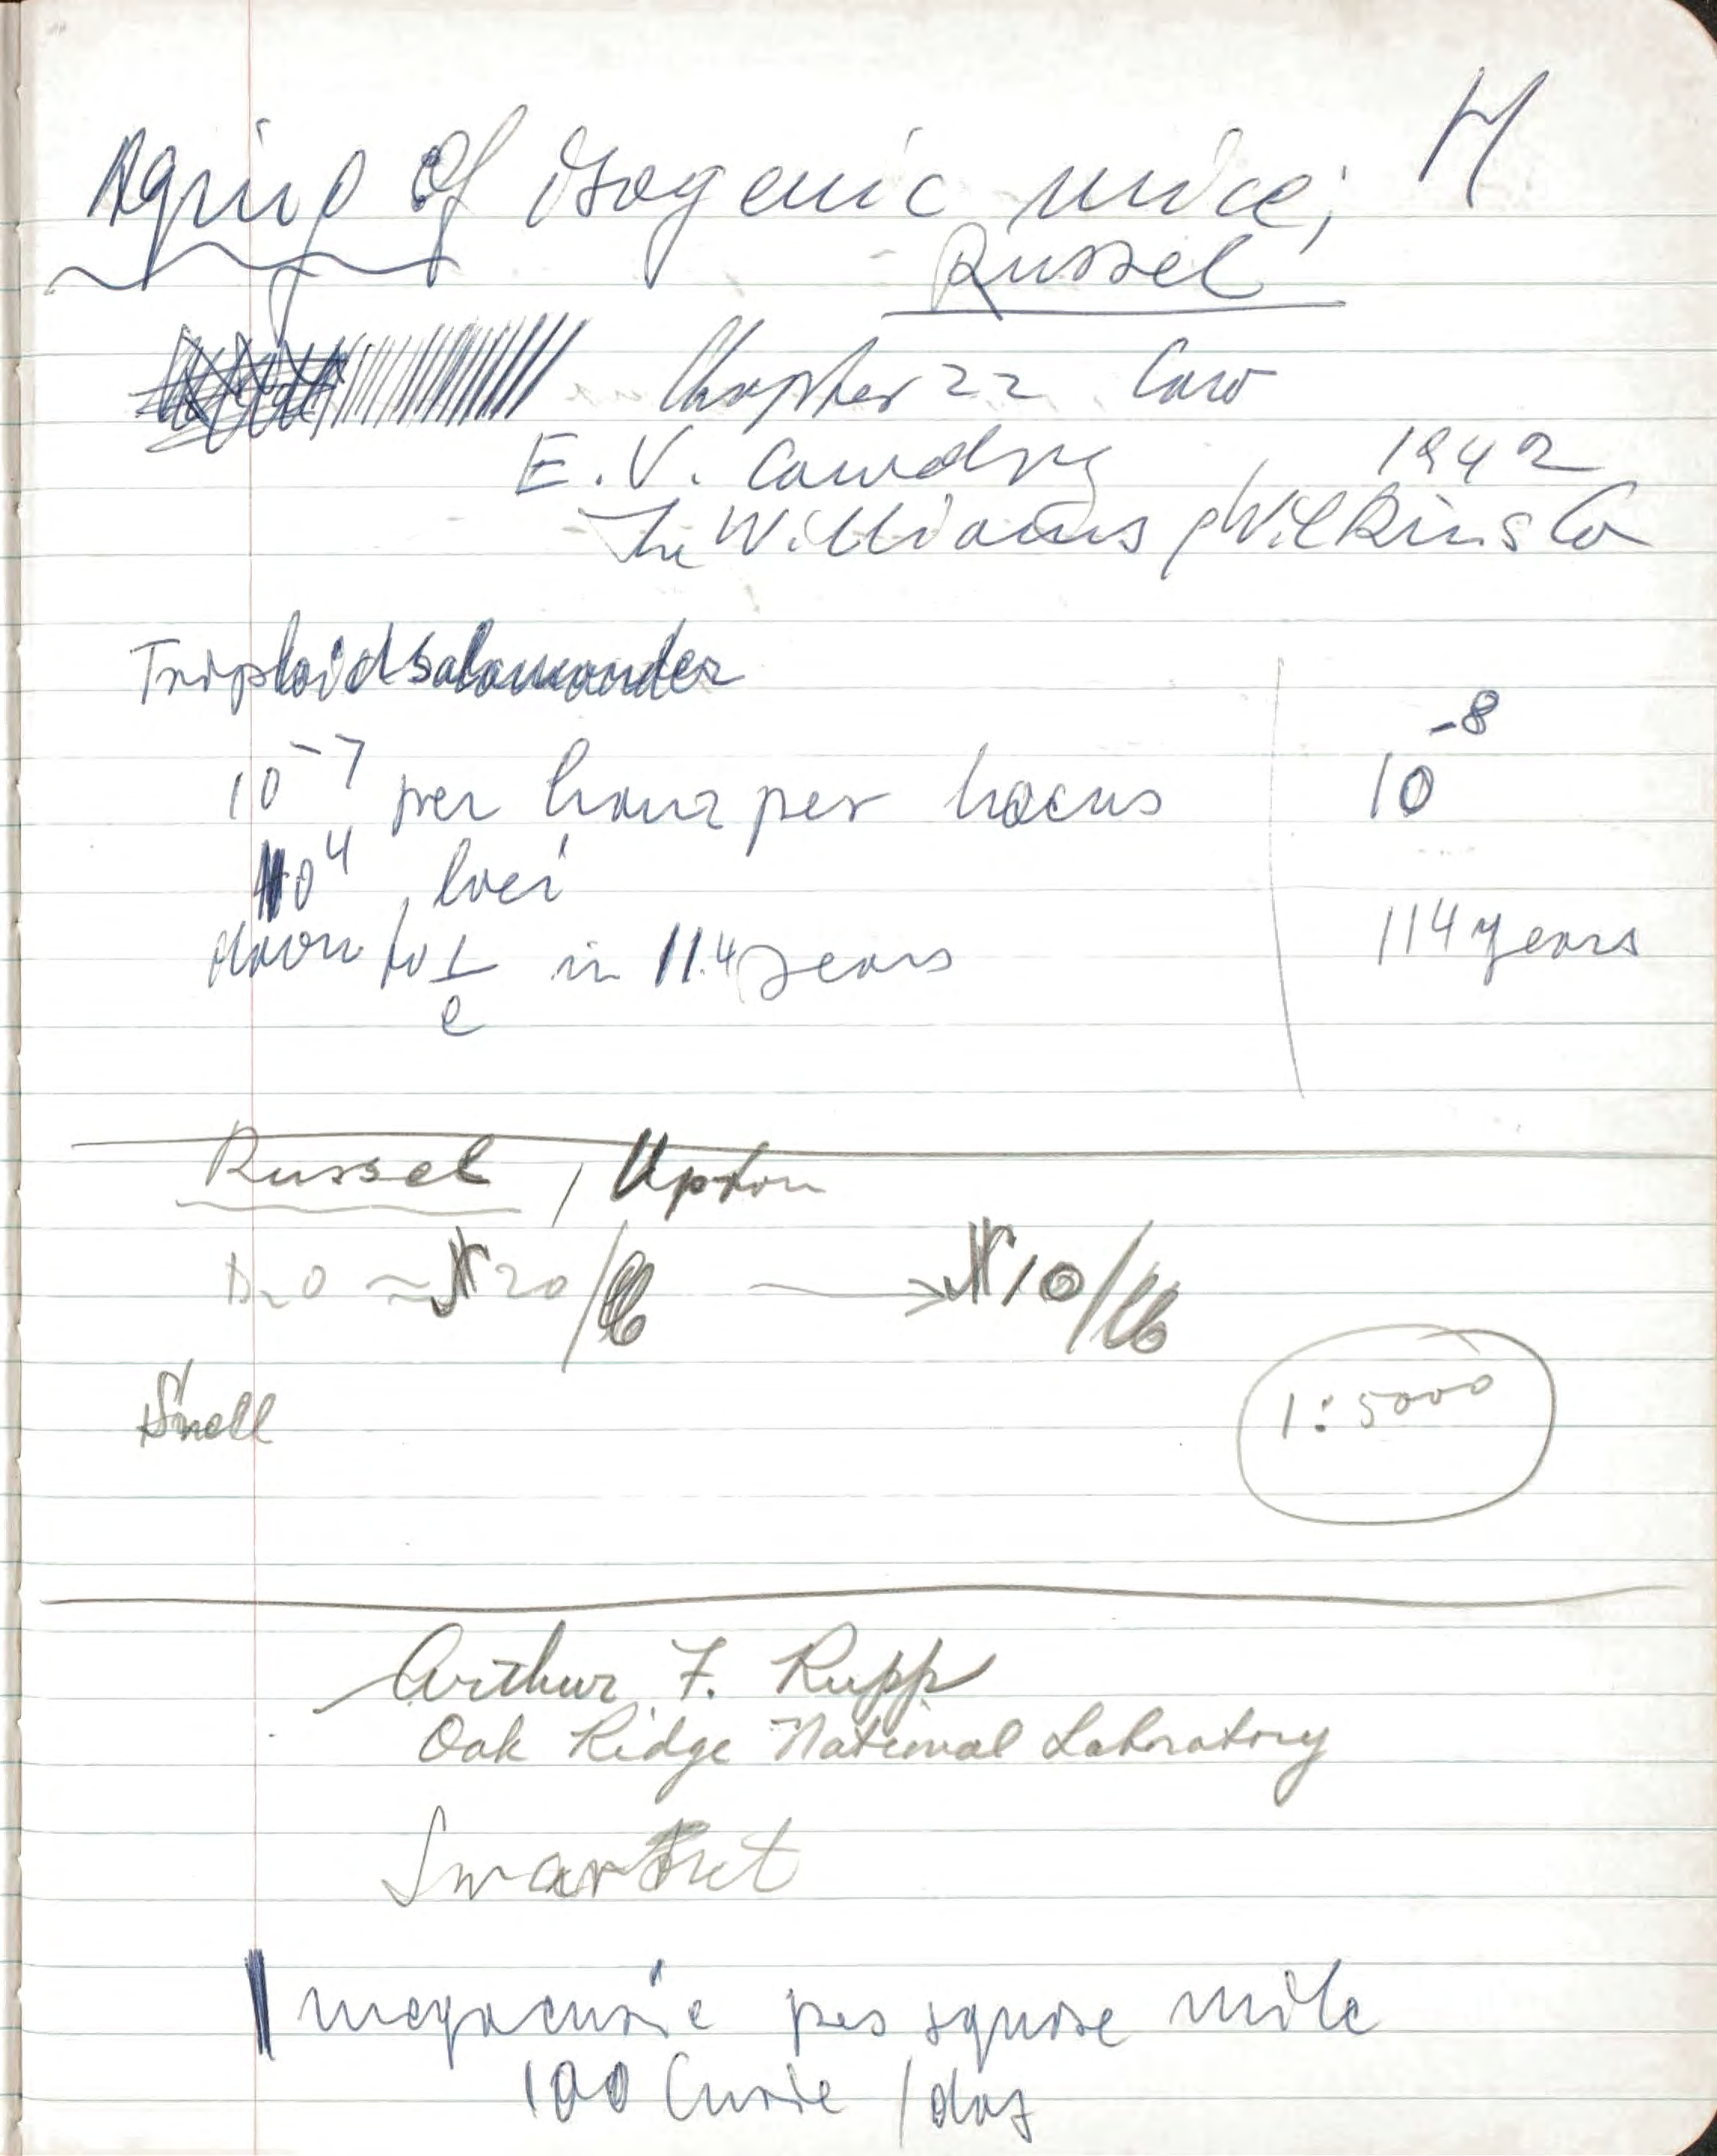 Aging of Isogenic mice; H
Russel
Chapter 22. Cow
E. V. Cowdry, 1942
The Williams & Wilkins Co
Triploid Salamander
10⁻⁷ per hour per locus | 10⁻⁸
10⁴ loci
down to 1/e in 11.4 years | 114 years
Russel, Upton
D₂O ≈ $20/lb → $10/lb
Snell
1:5000
Arthur F. Rupp
Oak Ridge National Laboratory
1 megacurie per square mile
100 Curie / day